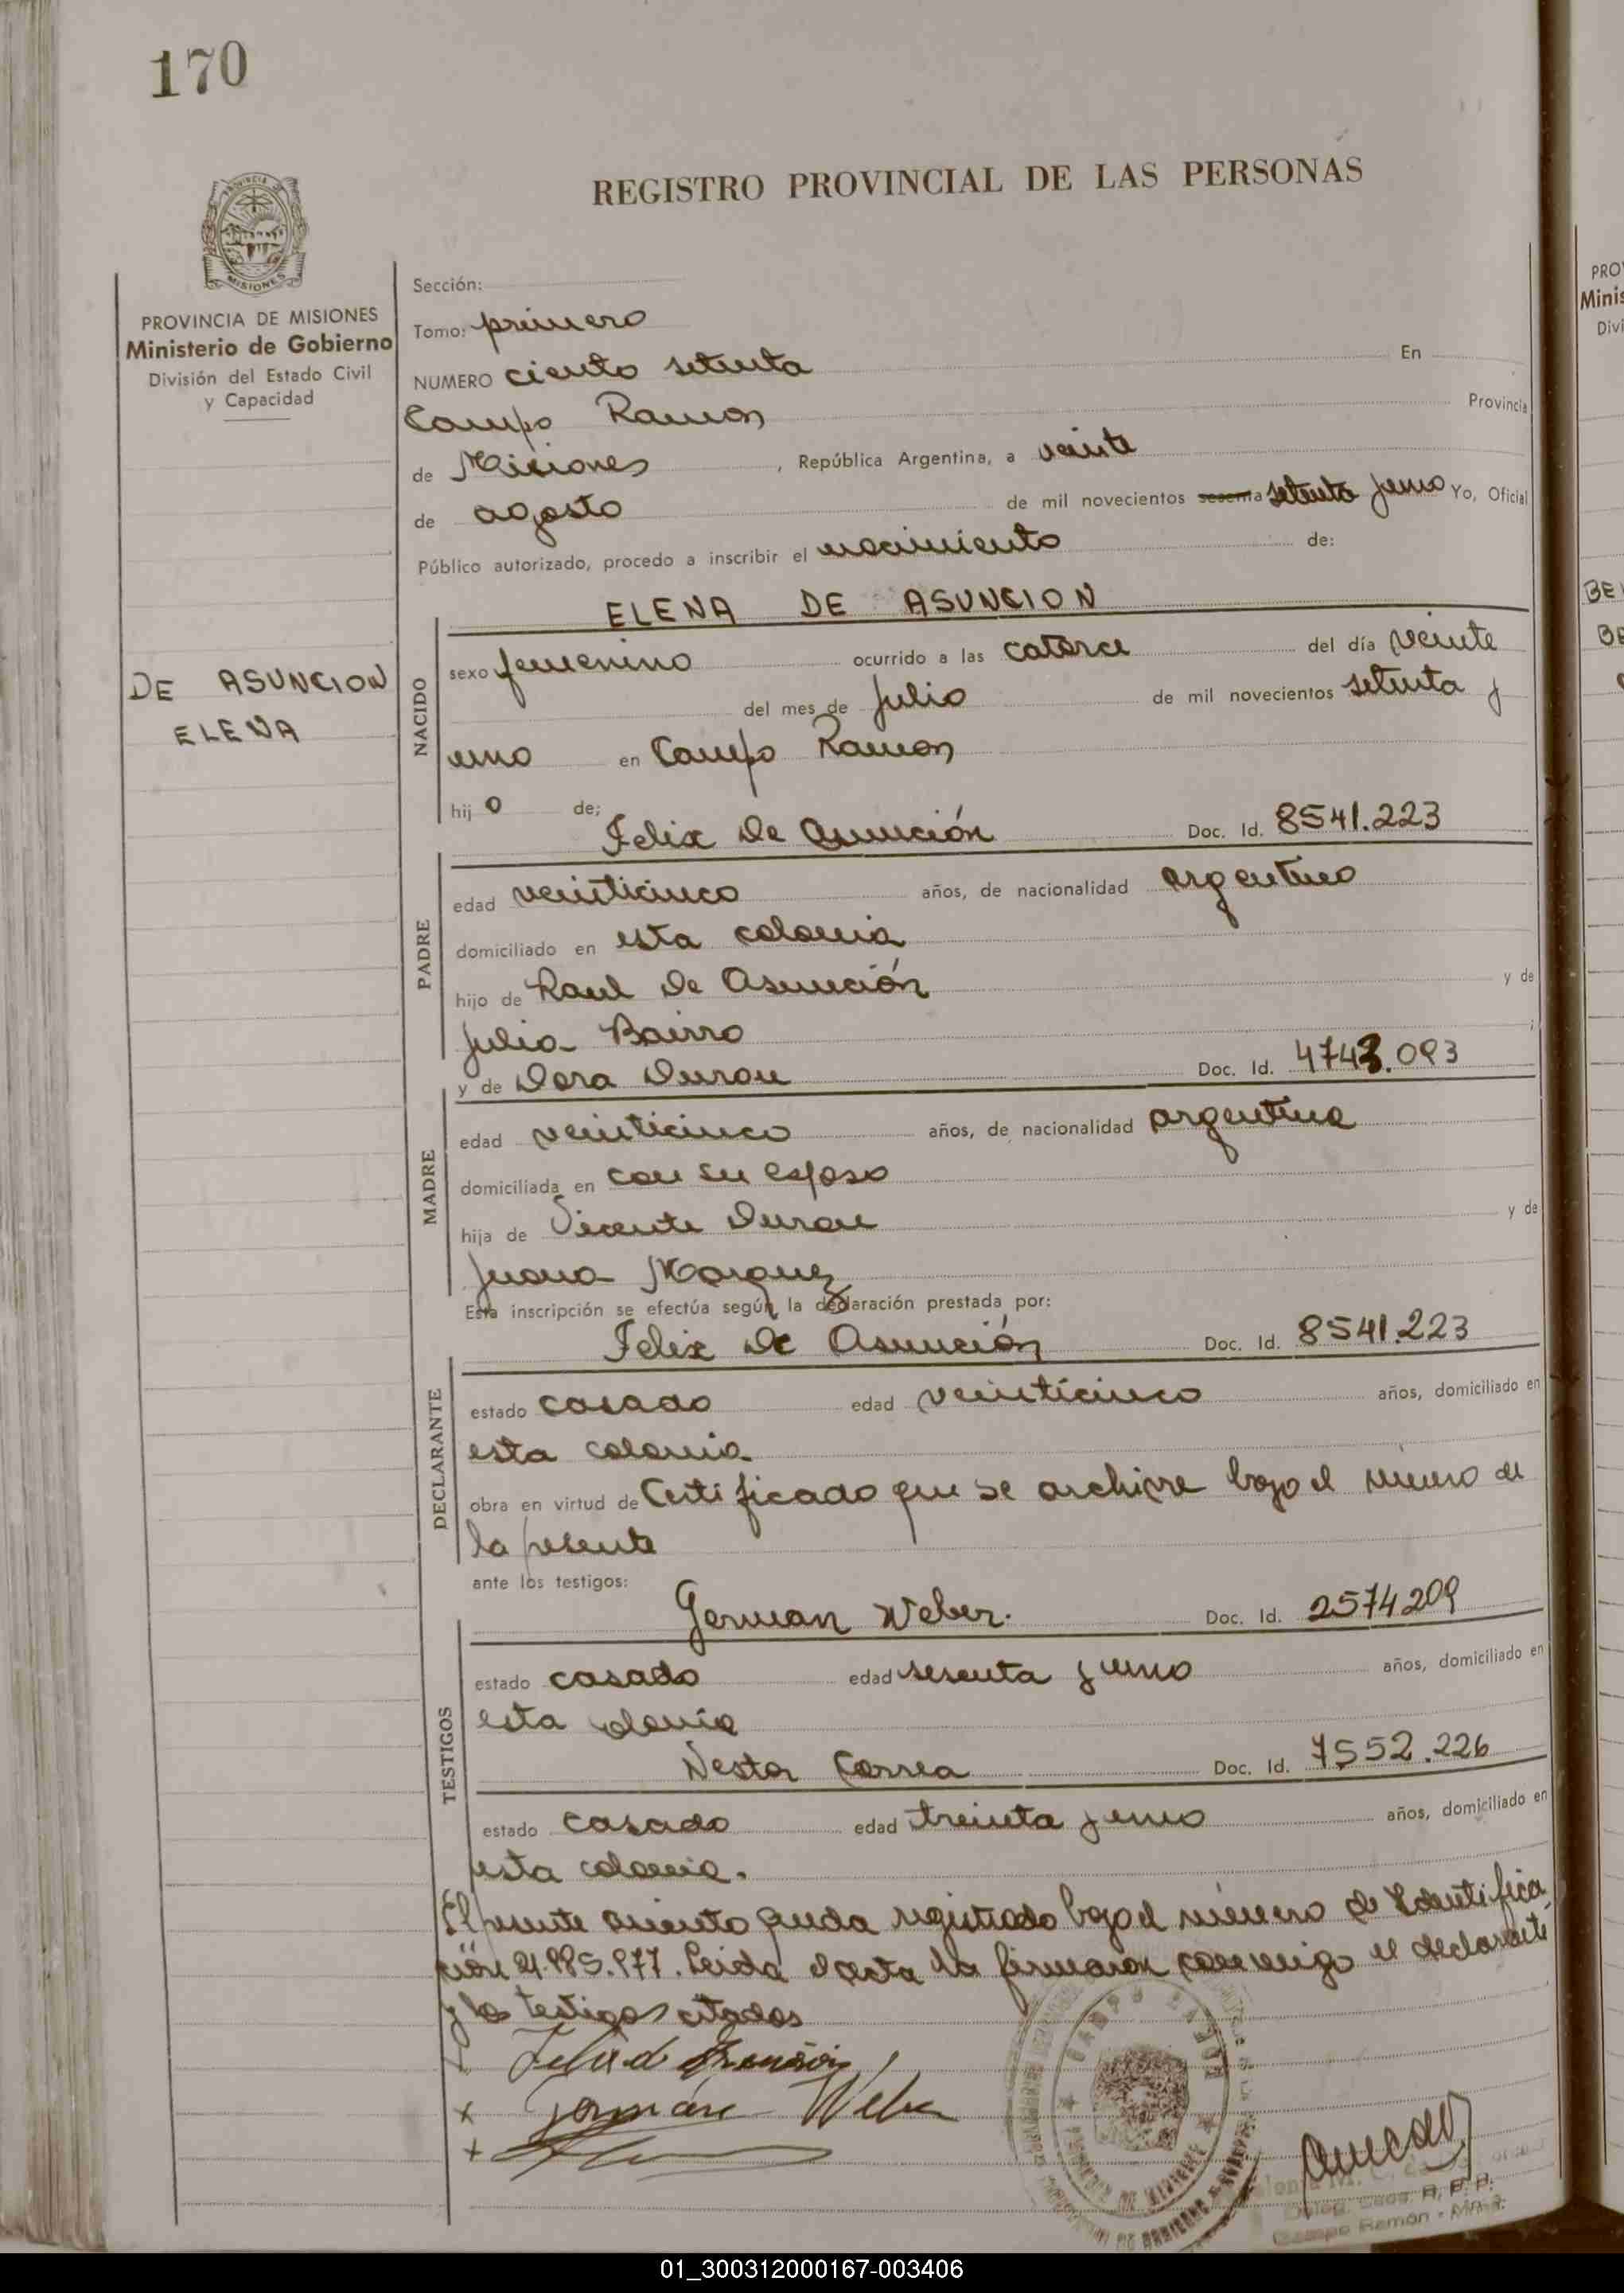 170
REGISTRO PROVINCIAL DE LAS PERSONAS
PROVINCIA DE MISIONES
MISIONES
PROVINCIA DE MISIONES
Ministerio de Gobierno
División del Estado Civil
y Capacidad
DE ASUNCION
ELENA
Sección:
Tomo: primero
NUMERO ciento setenta En
Campo Ramon Provincia
de Misiones , República Argentina, a veinte
de agosto de mil novecientos sesenta setenta y uno Yo, Oficial
Público autorizado, procedo a inscribir el nacimiento de:
ELENA DE ASUNCION
NACIDO
sexo femenino ocurrido a las catorce del día veinte
del mes de Julio de mil novecientos setenta y
uno en Campo Ramon
hij o de;
Felix De Asunción Doc. Id. 8541.223
PADRE
edad veinticinco años, de nacionalidad argentino
domiciliado en esta colonia
hijo de Raul De Asunción y de
Julia Bairro ;
y de Dora Duran Doc. Id. 4743.093
MADRE
edad veinticinco años, de nacionalidad argentina
domiciliada en con su esposo
hija de Vicente Duran y de
Juana Marquez
Esta inscripción se efectúa según la declaración prestada por:
Felix De Asunción Doc. Id. 8541.223
DECLARANTE
estado casado edad veinticinco años, domiciliado en
esta colonia
obra en virtud de Certificado que se archiva bajo el número de
la presente
ante los testigos:
German Weber. Doc. Id. 2574209
TESTIGOS
estado casado edad sesenta y uno años, domiciliado en
esta colonia
Nestor Correa Doc. Id. 7552.226
estado casado edad treinta y uno años, domiciliado en
esta colonia.
El presente asiento queda registrado bajo el número de Identifica
ción 21.985.977. Leida el acta la firmaron conmigo el declarante
y los testigos citados
German Weber
CAMPO RAMON
PROVINCIA DE MISIONES
Campo Ramón - Mnes.
01_300312000167-003406